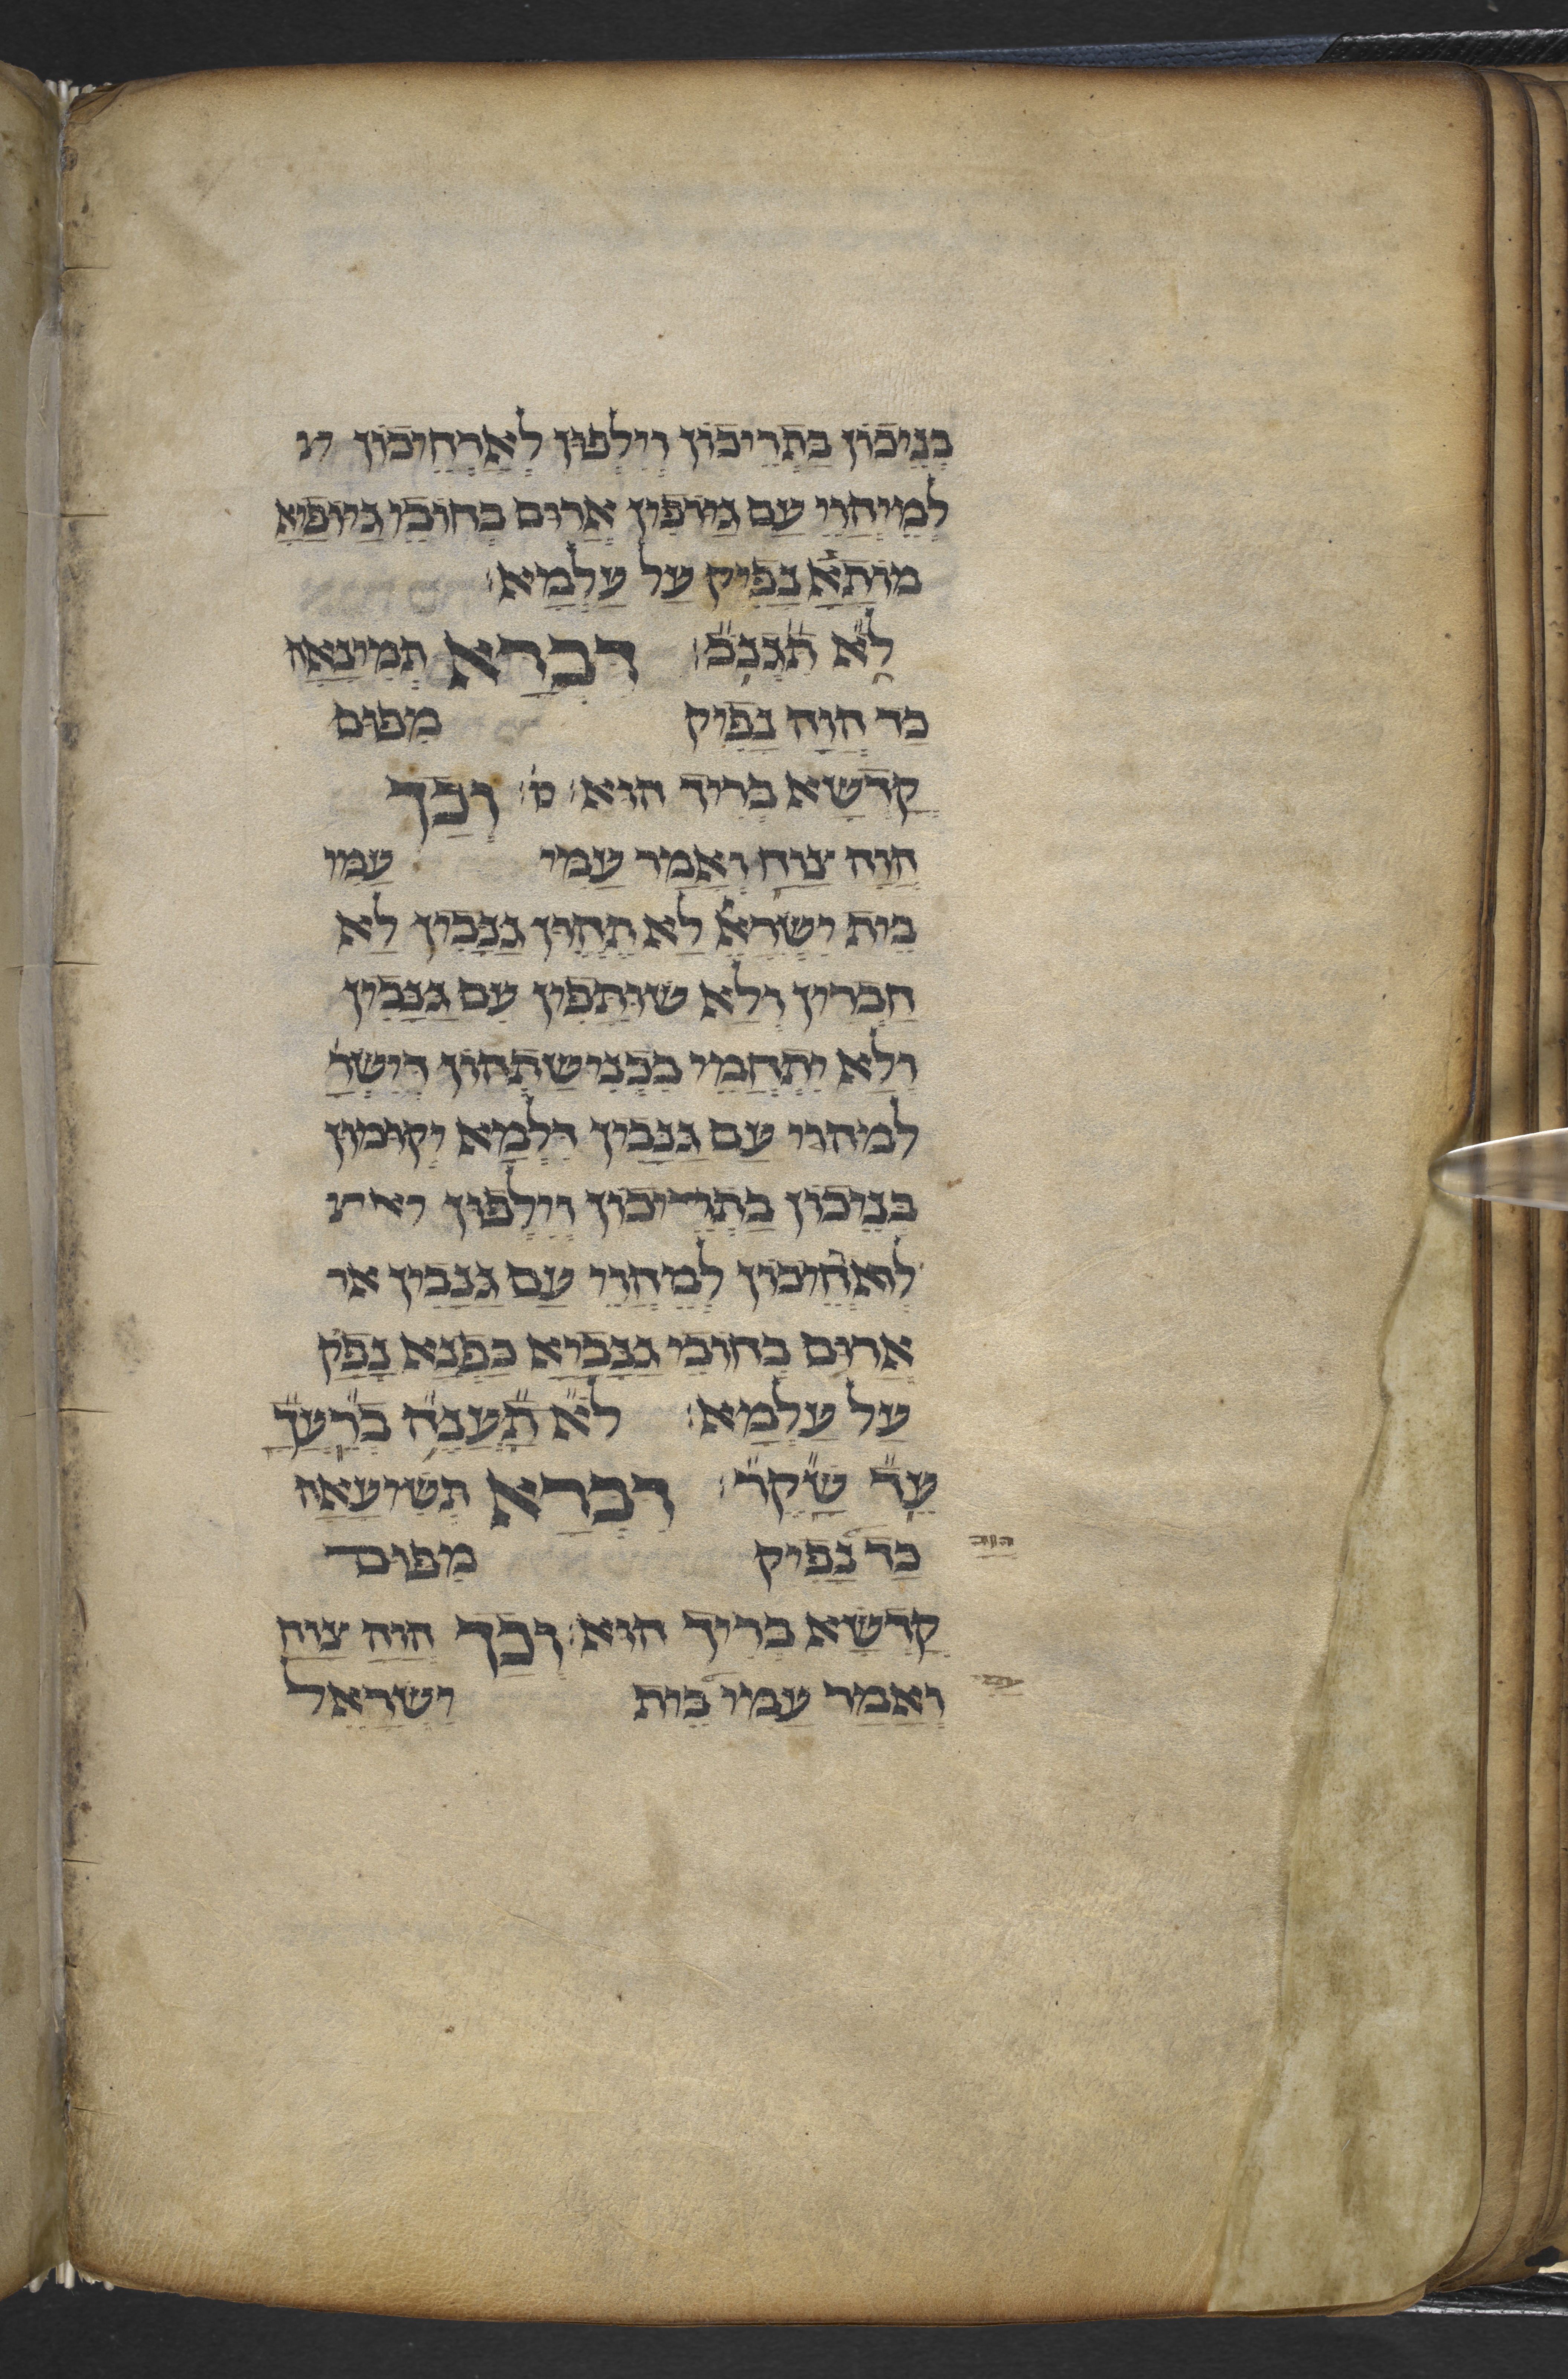 בְנֵיכוֹן בַתְרֵיכוֹן וְיֵלְפוּן לְאַרְחֵיכוֹן ינ
לְמֵיהֲוֵי עִם גַיוֹפִין אֲרוּם בְחוֹבֵי גַיוֹפַיָא
מוֹתָאֿ נָפֵיק עַל עָלְמָא׃
לֹא תִגְנֹב׃ דְבֵרָא תְמִינָאָה
כַד הֲוָה נָפֵיק מִפוּם
קֻדְשָא בְרִיךְ הוּא׃ ק׃ וְכַךְ
הֲוָה צָוַח וְאָמַר עַמִי עַמִי
בֵית יִשְרָאֵל לָא תֶהֱווֹן גַנָבִין לָא
חַבְרִין וְלָא שוּתָפִין עִם גַנָבִין
וְלָא יִתְחֲמֵי בִכְנִישַתְהוֹן דְיִשְרָ
לְמהוי עִם גַנָבִין דִלְמָא יְקוּמוּן
בְנֵיכוֹן בַתְרֵיכוֹן וְיֵילְפוּן יאינ
לְאַרְחֵיכוֹן לְמֶהֱוֵי עִם גַנָבִין אר
אֲרוּם בְחוֹבֵי גַנָבַיָא כַפְנָא נָפֵק
עַל עָלְמָא׃ לֹא תַעֲנֶה בְרֵעֲךָ
עֵד שָקֶר׃ דְבֵרָא תְשִיעָאָה
כַד נָפֵיק מִפוּם ד הוה
קֻדְשָא בְרִיךְ הוּא׃ וְכַךְ הֲוָה צָוַח
וְאָמַר עַמִי בֵית יִשְרָאֵל עמי